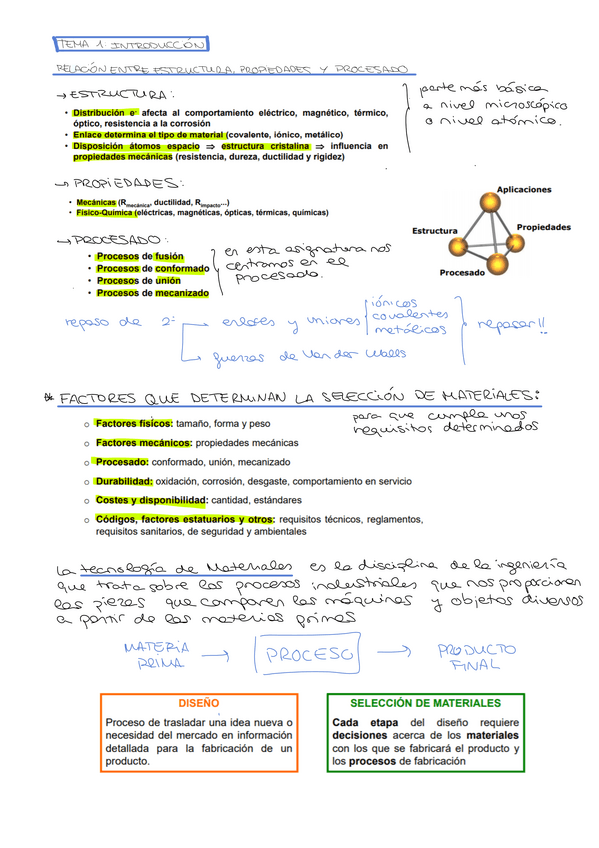 TEMA 1: INTRODUCCIÓN
RELACIÓN ENTRE ESTRUCTURA, PROPIEDADES Y PROCESADO
→ ESTRUCTURA:
• Distribución e⁻ afecta al comportamiento eléctrico, magnético, térmico,
óptico, resistencia a la corrosión
• Enlace determina el tipo de material (covalente, iónico, metálico)
• Disposición átomos espacio ⇒ estructura cristalina ⇒ influencia en
propiedades mecánicas (resistencia, dureza, ductilidad y rigidez)
parte más básica
a nivel microscópico
o nivel atómico.
→ PROPIEDADES:
• Mecánicas (Rmecánica, ductilidad, Rimpacto...)
• Físico-Química (eléctricas, magnéticas, ópticas, térmicas, químicas)
Aplicaciones
Estructura
Propiedades
Procesado
→ PROCESADO:
• Procesos de fusión
• Procesos de conformado
• Procesos de unión
• Procesos de mecanizado
en esta asignatura nos
centramos en el
procesado.
repaso de 2º
→ enlaces y uniones
iónicos
covalentes
metálicos
repasar!!
→ fuerzas de Van der Walls
* FACTORES QUE DETERMINAN LA SELECCIÓN DE MATERIALES:
para que cumpla unos
requisitos determinados
o Factores físicos: tamaño, forma y peso
o Factores mecánicos: propiedades mecánicas
o Procesado: conformado, unión, mecanizado
o Durabilidad: oxidación, corrosión, desgaste, comportamiento en servicio
o Costes y disponibilidad: cantidad, estándares
o Códigos, factores estatuarios y otros: requisitos técnicos, reglamentos,
requisitos sanitarios, de seguridad y ambientales
La tecnología de Materiales es la disciplina de la ingeniería
que trata sobre los procesos industriales que nos proporcionan
las piezas que componen las máquinas y objetos diversos
a partir de las materias primas
MATERIA
PRIMA
→ PROCESO →
PRODUCTO
FINAL
DISEÑO
Proceso de trasladar una idea nueva o
necesidad del mercado en información
detallada para la fabricación de un
producto.
SELECCIÓN DE MATERIALES
Cada etapa del diseño requiere
decisiones acerca de los materiales
con los que se fabricará el producto y
los procesos de fabricación